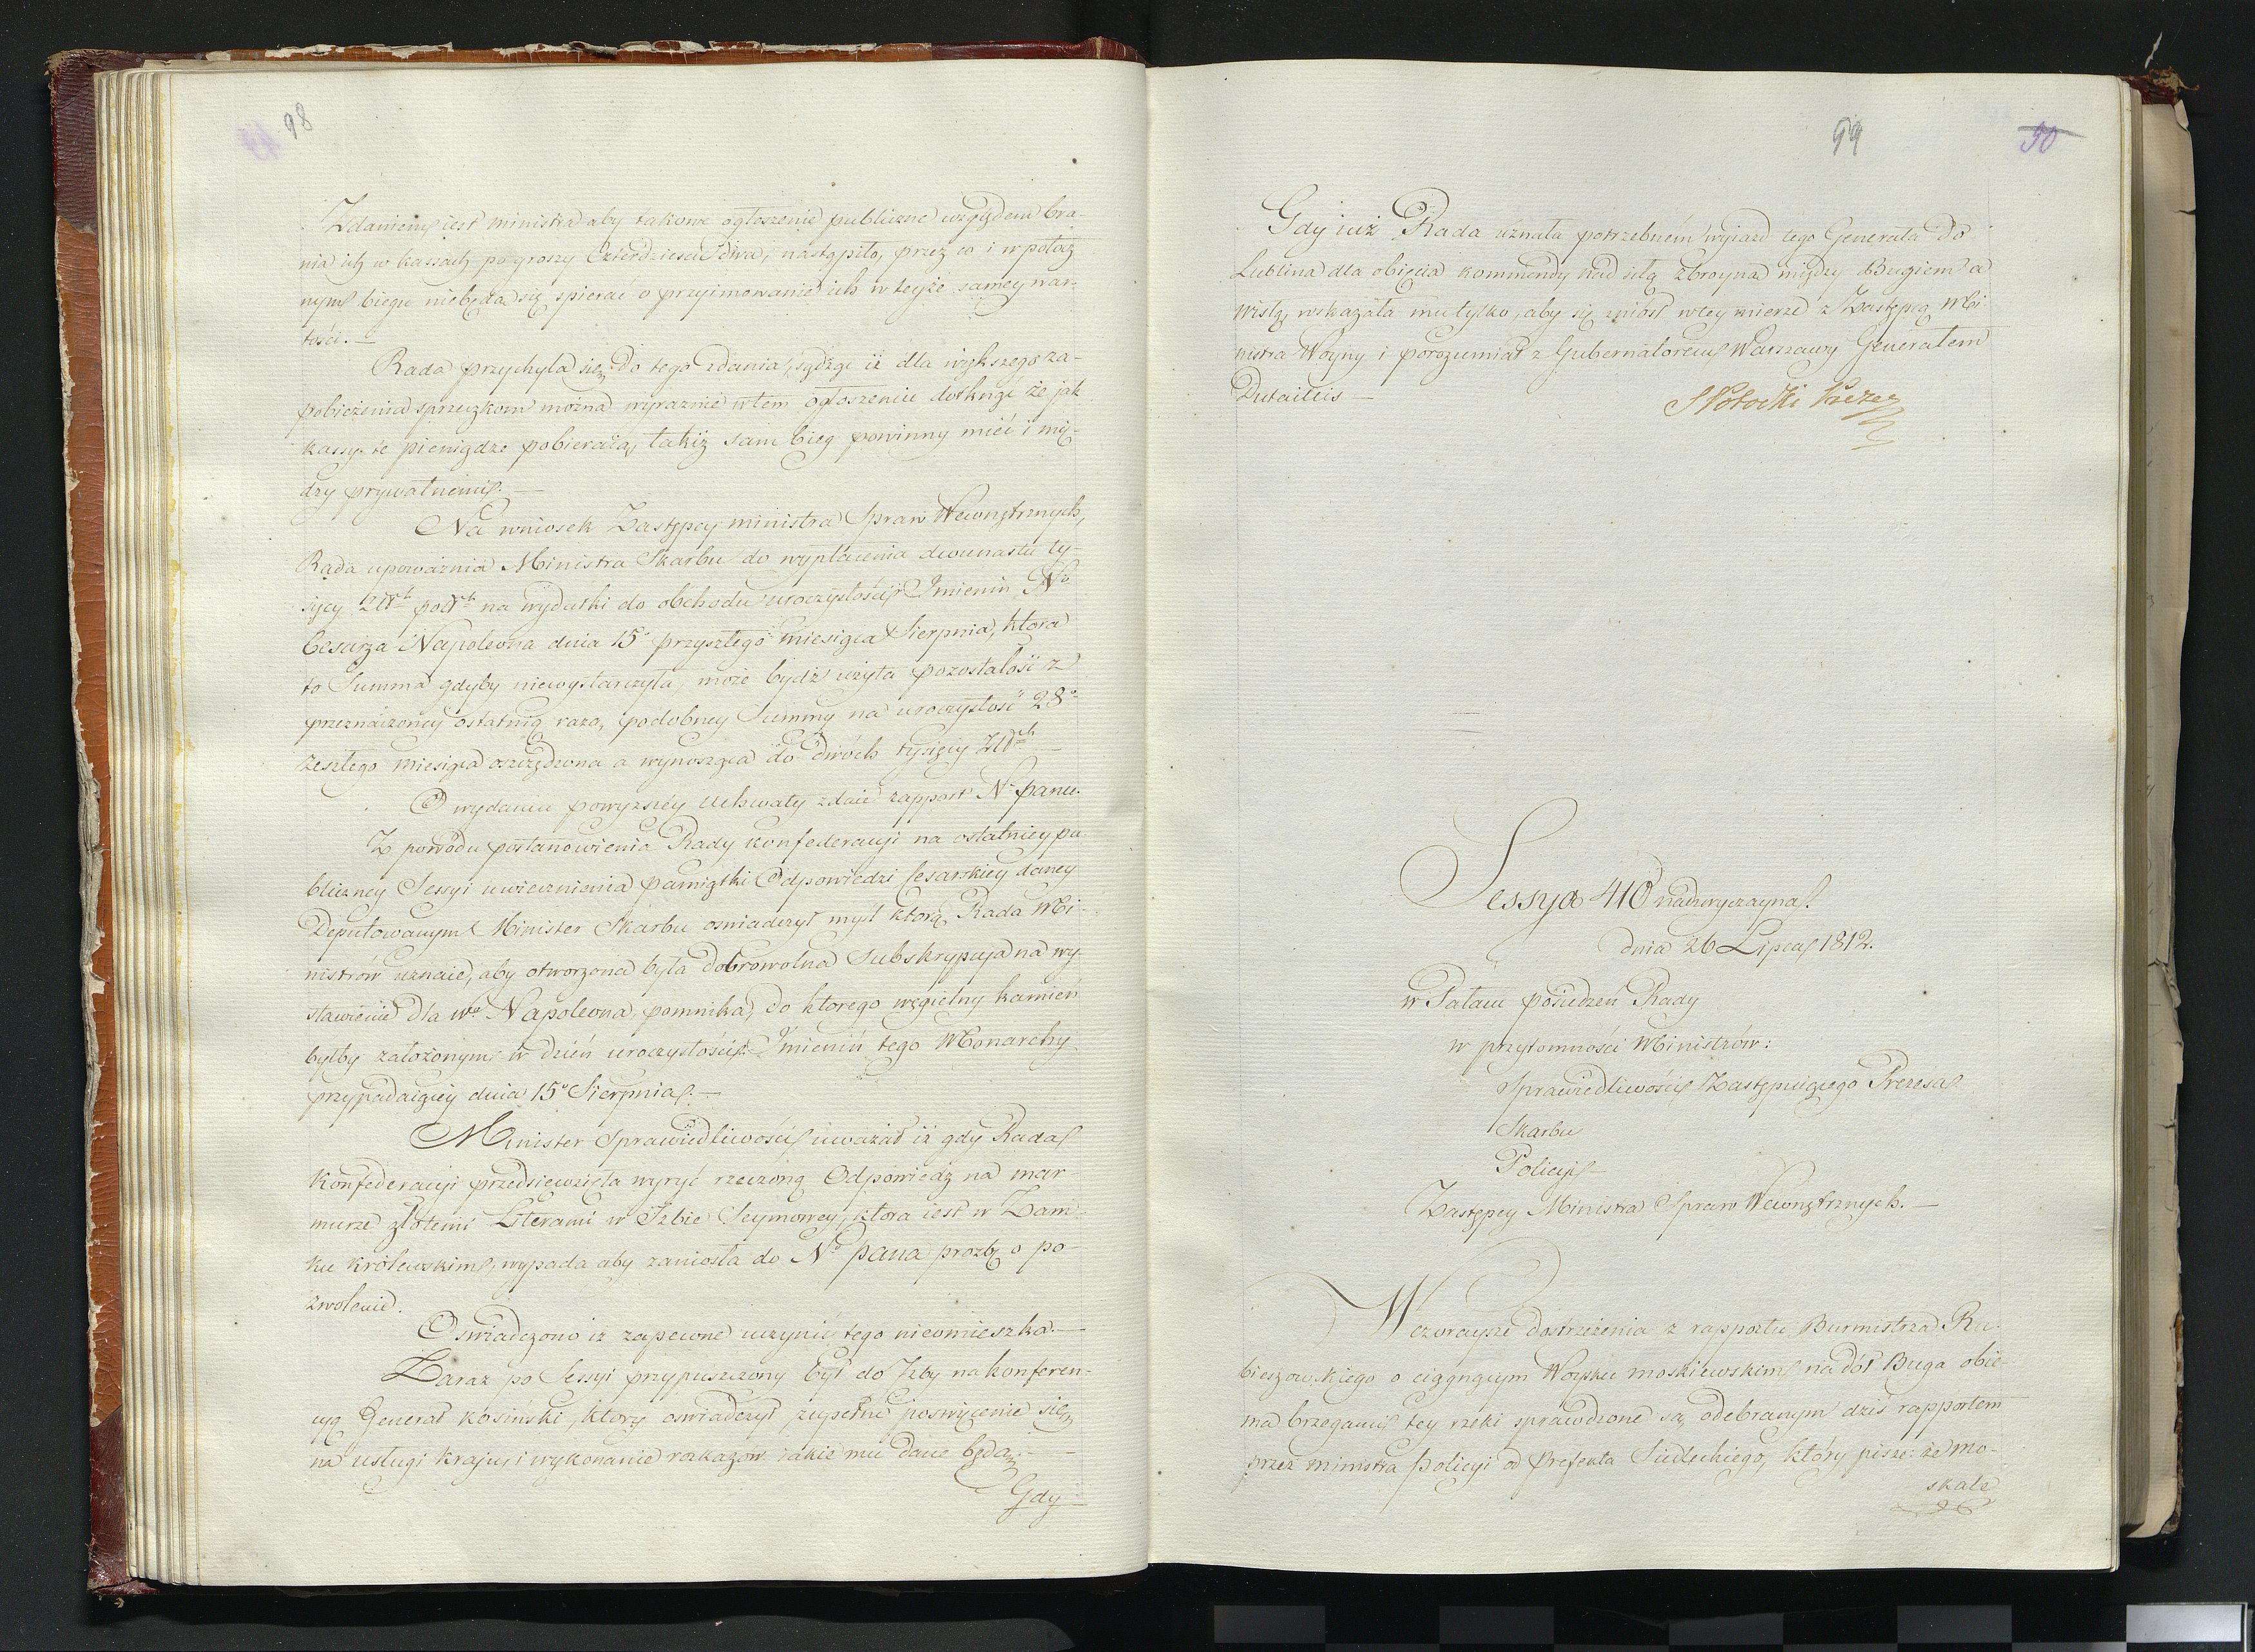 98
Zdaniem iest ministra aby takowe ogłoszenie publiczne względem bra-
nia ich w kassach po groszy Czterdzieści dwa, nastąpiło, przez co i w potocz
nym biegu niebędą się spierać o przyimowanie ich w teyże samey war-
tości. —
Rada przychyla się do tego zdania, sądząc iż dla większego za-
pobieżenia sprzeczkom można wyraznie w tem ogłoszeniu dotknąć że jak
kassy te pieniądze pobieraią, takiż sam bieg powinny mieć i mię-
dzy prywatnemi. —
Na wniosek Zastępcy ministra Spraw Wewnętrznych,
Rada upoważnia Ministra Skarbu do wypłacenia dwunastu ty-
sięcy Złtch polch na wydatki do obchodu uroczystości Imienin No
Cesarza Napoleona dnia 15o przyszłego miesiąca Sierpnia, ktora
to Summa gdyby niewystarczyła, może bydź użyta pozostałość z
przeznaczoney ostatnią razą, podobney Summy na uroczystość 28o
zeszłego miesiąca oszczędzona a wynosząca do dwóch tysięcy Złtch —
O wydaniu powyższey uchwały zdaie rapport No panu.
Z powodu postanowienia Rady konfederacyi na ostatniey pu-
bliczney Sessyi uwiecznienia pamiątki Odpowiedzi Cesarskiey daney
Deputowanym Minister Skarbu oswiadczył myśl ktorą Rada Mi-
nistrów uznaie, aby otworzona była dobrowolna Subskrypcyja na wy-
stawienie dla Wo Napoleona pomnika, do ktorego węgielny kamień
byłby założonym w dzień uroczystości Imienin tego Monarchy
przypadaiącey dnia 15o Sierpnia. —
Minister Sprawiedliwości uważał iż gdy Rada
Konfederacyi przedsiewzięła wyryć rzeczoną Odpowiedź na mar-
murze złotemi Literami w Izbie Seymowey, ktora iest w Zam-
ku królewskim, wypada aby zaniosła do No pana prozbę o po-
zwolenie.
Oswiadczono iż zapewne uczynić tego nieomieszka. —
Zaraz po Sessyi przypuszczony był do Izby na konferen-
cyą Generał Kosiński, ktory oswiadczył zupełne poswięcenie się
na usługi kraju i wykonanie rozkazów iakie mu dane będą. —
Gdy
99
50
Gdy iuż Rada uznała potrzebnem wyjazd tego Generała do
Lublina dla obięcia kommendy nad siłą zbroyną między Bugiem a
Wisłą, wskazała mu tylko, aby się zniósł w tey mierze z Zastępcą Mi-
nistra Woyny i porozumiał z Gubernatorem Warszawy Generałem
Dutaillis —
SPotocki Prezes
Sessya 410 nadzwyczayna.
dnia 26 Lipca 1812.
w Pałacu posiedzeń Rady
w przytomności Ministrów:
Sprawiedliwości Zastępuiącego Prezesa
Skarbu
Policyi —
Zastępcy Ministra Spraw Wewnętrznych. —
Wczoraysze dostrzeżenia z rapportu Burmistrza Ru-
bieszowskiego o ciągnącym Woysku moskiewskim na dół Buga obie-
ma brzegami tey rzeki sprawdzone są odebranym dziś rapportem
przez ministra policyi od Prefekta Siedleckiego, który pisze: że Mo-
skale